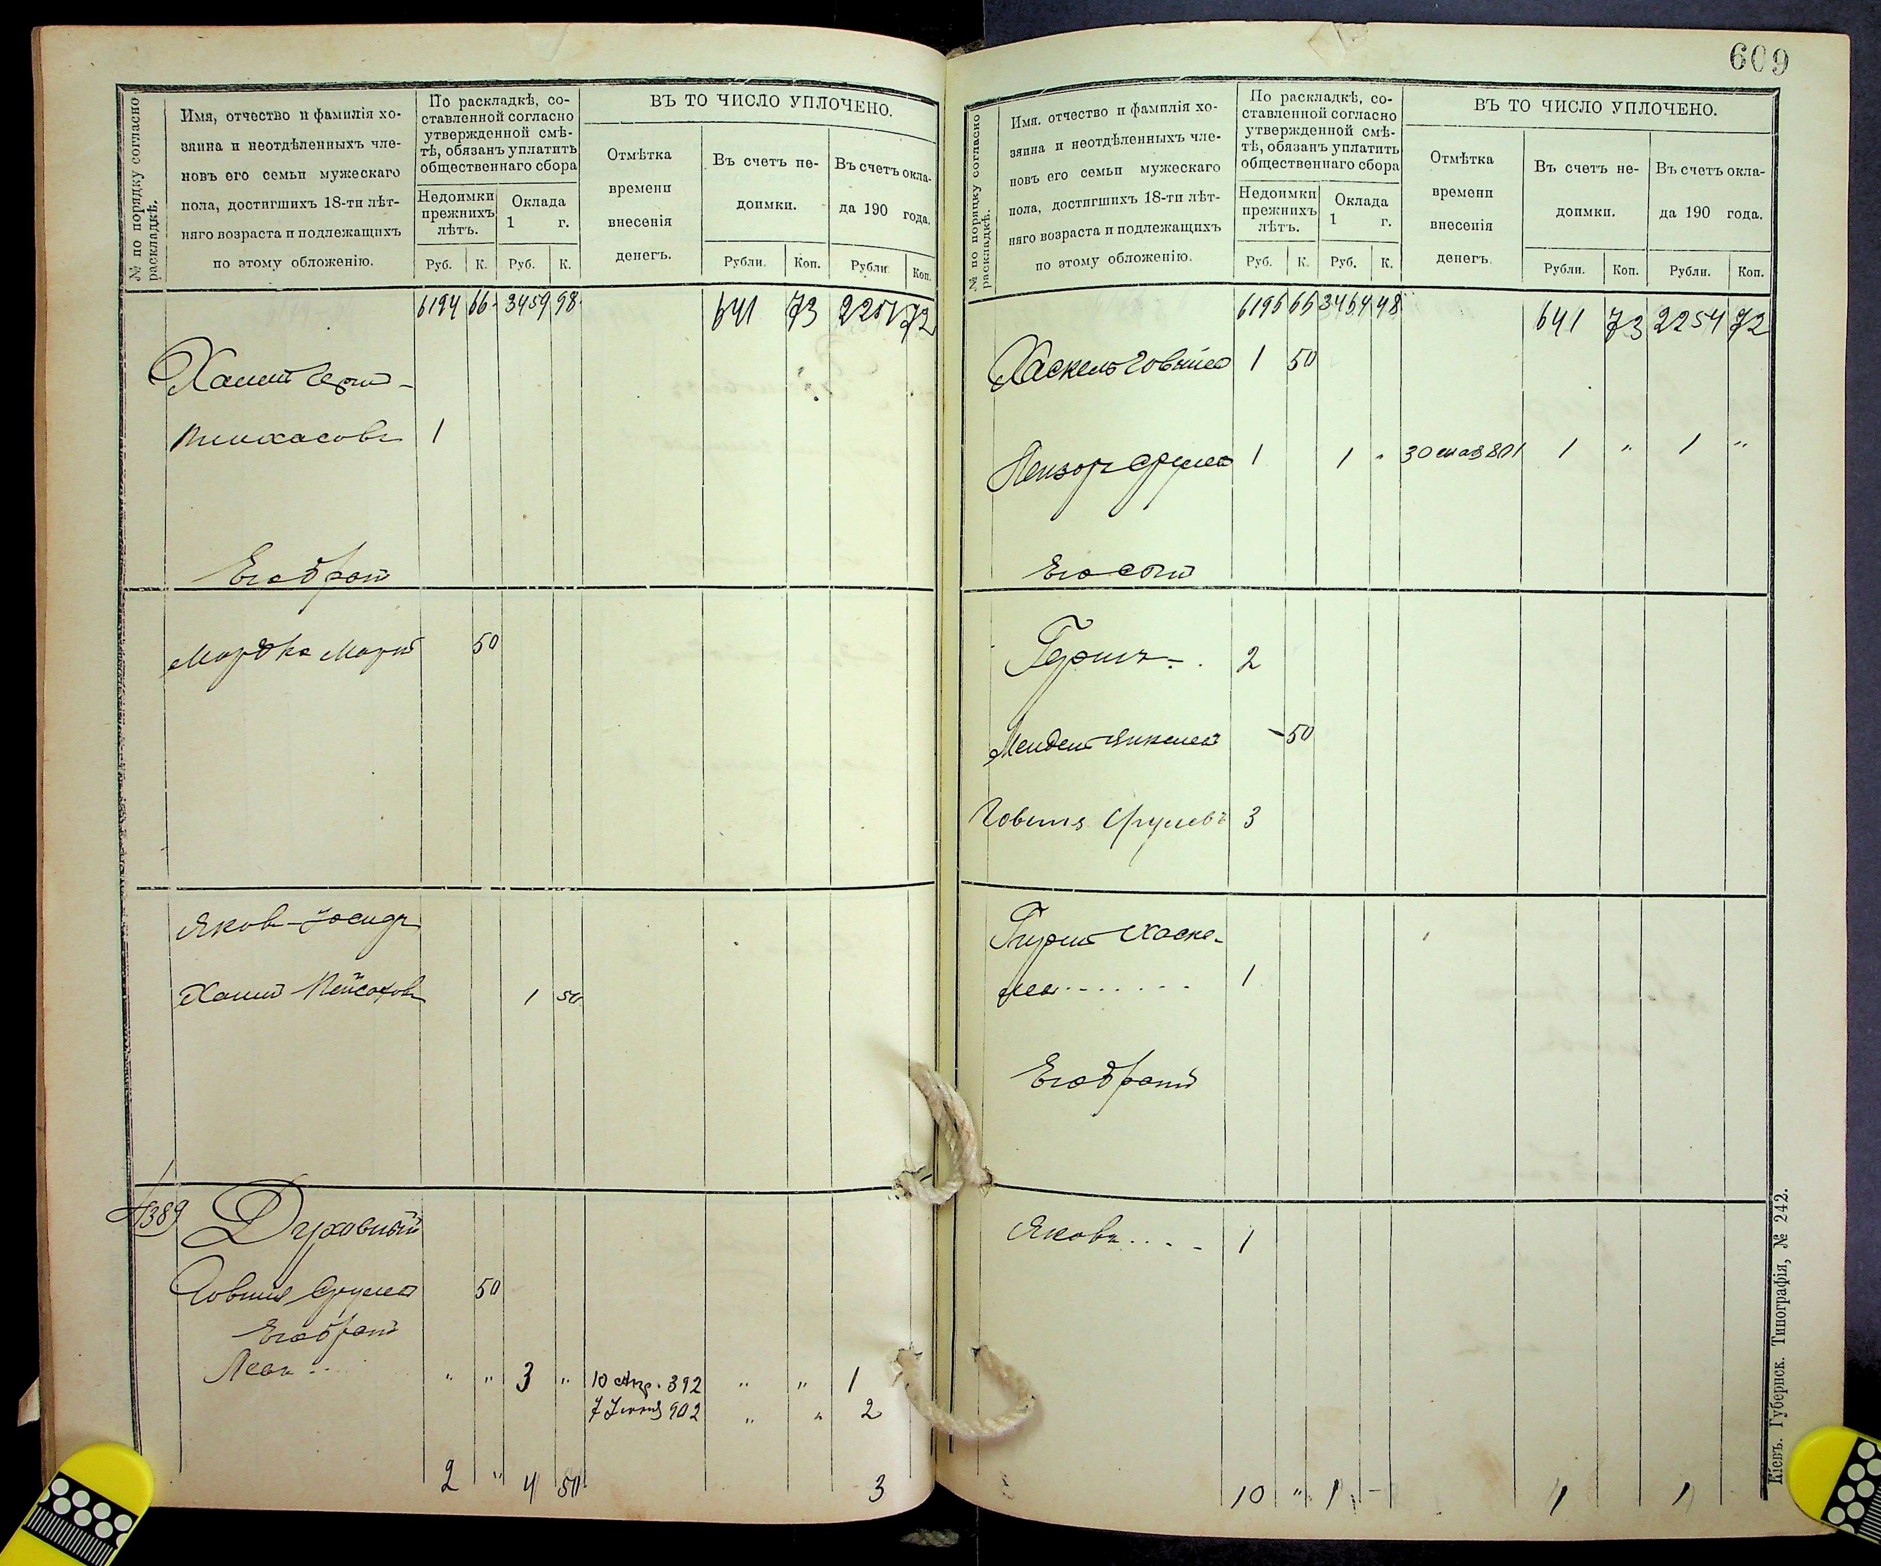 № по порядку согласно раскладкѣ.
Имя, отчество и фамилія хо-
зяина и неотдѣленныхъ чле-
новъ его семьи мужескаго
пола, достигшихъ 18-ти лѣт-
няго возраста и подлежащихъ
по этому обложенію.
По раскладкѣ, со-
ставленной согласно
утвержденной смѣ-
тѣ, обязанъ уплатить
общественнаго сбора
Недоимки
прежнихъ
лѣтъ.
Оклада
1 г.
Руб. К. Руб. К.
ВЪ ТО ЧИСЛО УПЛОЧЕНО.
Отмѣтка
времени
внесенія
денегъ.
Въ счетъ не-
доимки.
Въ счетъ окла-
да 190 года.
Рубли. Коп. Рубли. Коп.
6194 66 3459 98 641 73 2251 72
Пинхасовъ 1
Его братъ
Мордко 50
Яковъ-Іосифъ
Хаимъ Пейсахов 1 50
1389 Духовный
Говшия Срулев 50
Его братъ
Лейб
" " 3 " 10 Апр. 392 " " 1
7 Іюня 902 " " 2
2 " 4 50 3
609
№ по порядку согласно раскладкѣ.
Имя, отчество и фамилія хо-
зяина и неотдѣленныхъ чле-
новъ его семьи мужескаго
пола, достигшихъ 18-ти лѣт-
няго возраста и подлежащихъ
по этому обложенію.
По раскладкѣ, со-
ставленной согласно
утвержденной смѣ-
тѣ, обязанъ уплатить
общественнаго сбора
Недоимки
прежнихъ
лѣтъ.
Оклада
1 г.
Руб. К. Руб. К.
ВЪ ТО ЧИСЛО УПЛОЧЕНО.
Отмѣтка
времени
внесенія
денегъ.
Въ счетъ не-
доимки.
Въ счетъ окла-
да 190 года.
Рубли. Коп. Рубли. Коп.
6196 66 3464 48 641 73 2254 72
Хаскель Говшиев 1 50
Лейзор Срулев 1 1 " 1 " 1 "
Его сын
Гершъ - . 2
Мендель Янкелев - 50
Говшия Срулевъ 3
Гершъ Хаске-
лев . . . . . . . 1
Его братъ
Яковъ . . . - 1
10 " 1 - 1 1
Кіевъ. Губернск. Типографія, № 242.